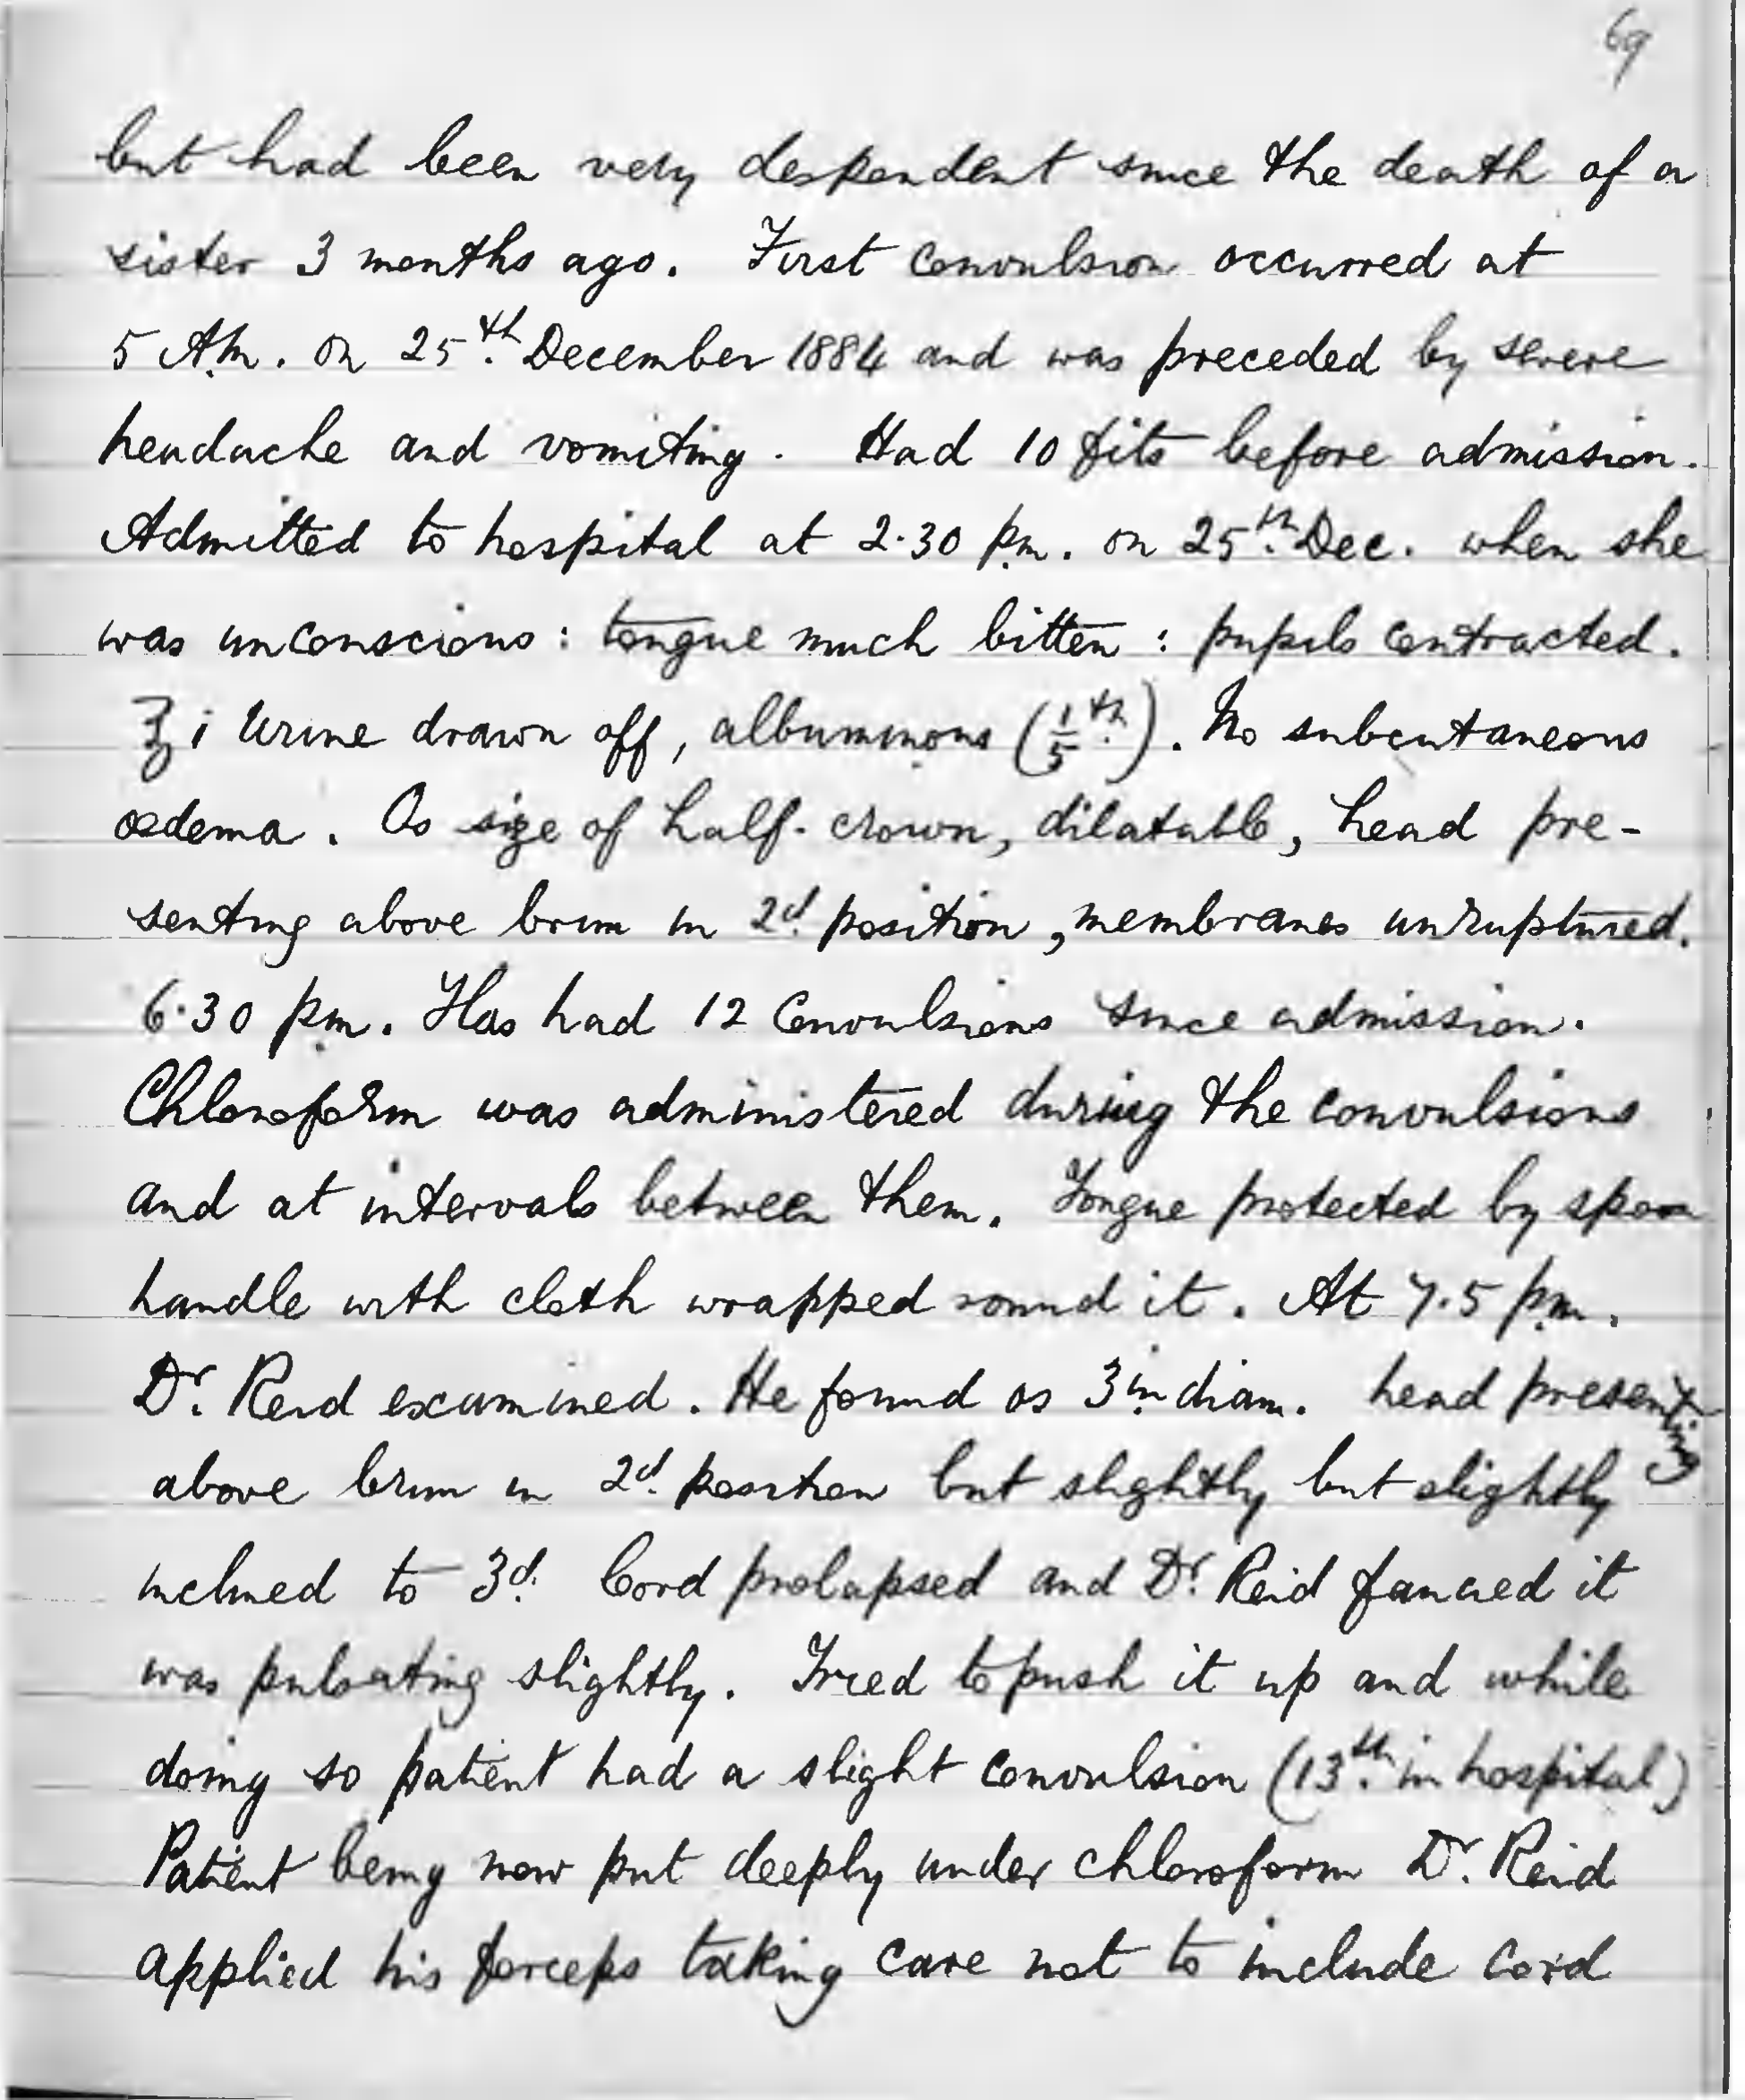 69
but had been very despondent since the death of a
sister 3 months ago. First convulsion occurred at
5 A.m. on 25th. December 1884 and was preceded by severe
headache and vomiting. Had 10 fits before admission.
Admitted to hospital at 2.30 p.m. on 25th. Dec. when she
was unconscious: tongue much bitten: pupils contracted.
℥ i Urine drawn off, albuminous (1/5 th.). No subcutaneous
oedema. Os size of half-crown, dilatable, head pre-
senting above brim in 2d. position, membranes unruptured.
6.30 p.m. Has had 12 Convulsions since admission.
Chloroform was administered during the convulsions
and at intervals between them. Tongue protected by spoon
handle with cloth wrapped round it. At 7.5 p.m.
Dr. Reid examined. He found os 3 in diam. head presenting
above brim in 2d. position but slightly but slightly
inclined to 3d. Cord prolapsed and Dr. Reid fancied it
was pulsating slightly. Tried to push it up and while
doing so patient had a slight convulsion (13th. in hospital)
Patient being now put deeply under chloroform Dr. Reid
applied his forceps taking care not to include cord